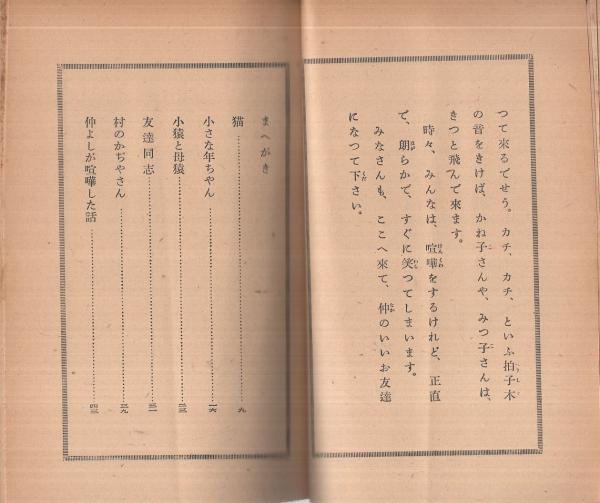 つて來るでせう。カチ、カチ、といふ拍子木
の音をきけば、かね子さんや、みつ子さんは、
きつと飛んで來ます。
時々、みんなは、喧嘩をするけれど、正直
で、朗らかで、すぐに笑つてしまいます。
みなさんも、ここへ來て、仲のいいお友達
になつて下さい。
まへがき
猫……九
小さな年ちやん……一六
小猿と母猿……二三
友達同志……三一
村のかぢやさん……三九
仲よしが喧嘩した話……四三